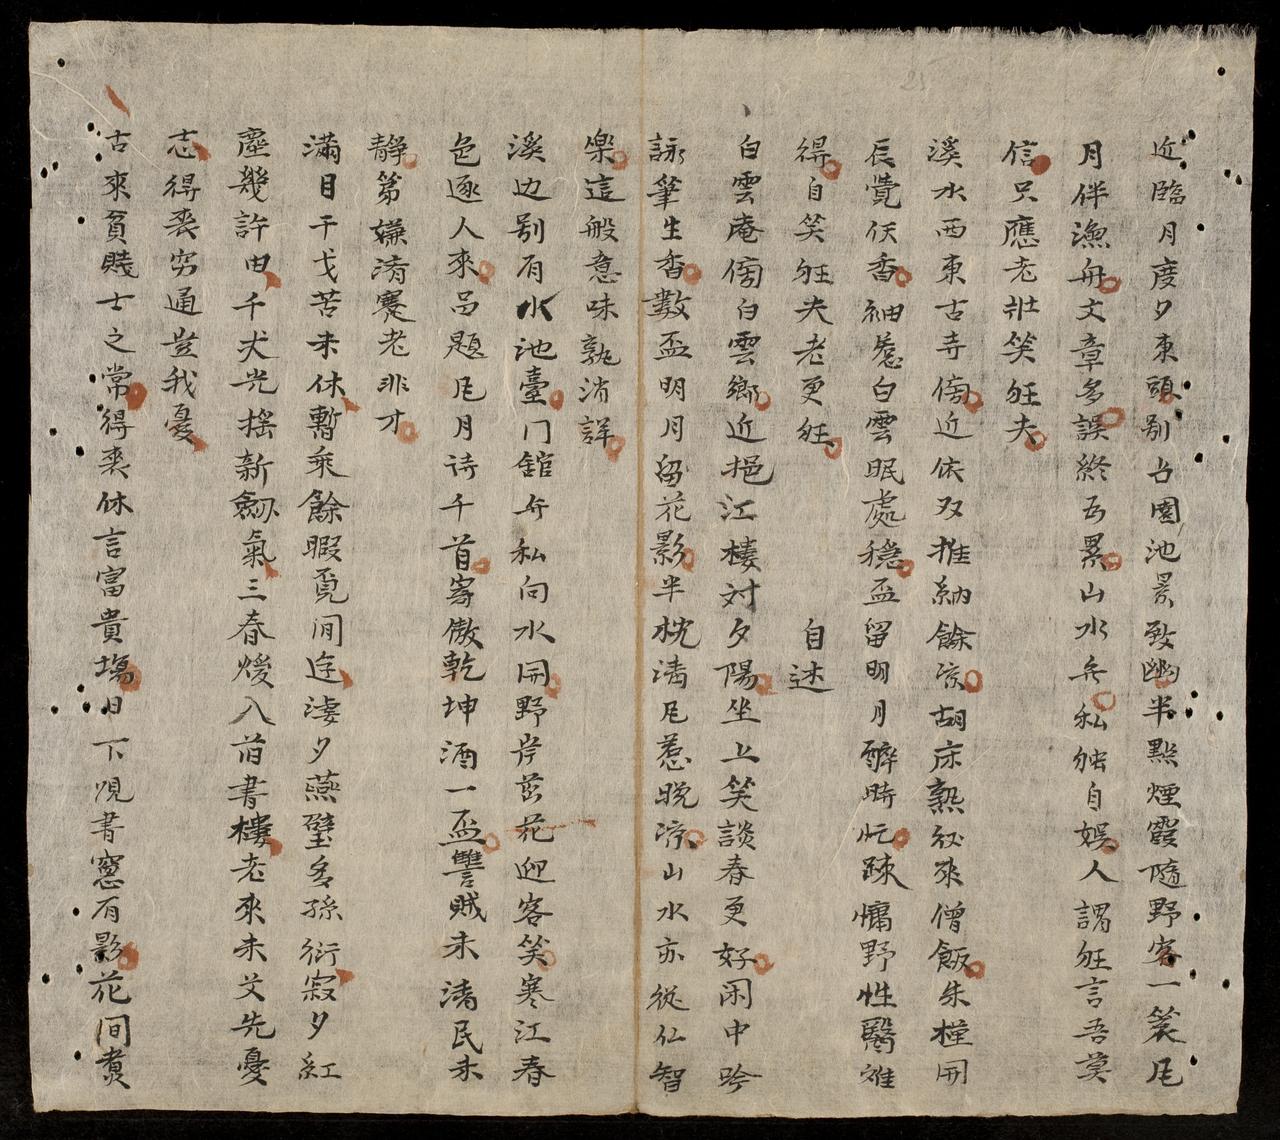 近臨月度夕東頭别占園池景致幽半點煙霞隨野客一簑凨
月伴漁舟文章多誤終吾累山水無私能自娱人謂狂言吾莫
信只應老壯笑狂夫
溪水西東古寺傍近依双推納餘凉胡床熟衲來僧飯朱槿開
辰覺佞香袖惹白雲眠處穩盃留明月醉時忙踈慵野性醫难
得自笑狂夫老更狂 自述
白雲庵傍白雲鄉近挹江楼対夕陽坐上笑談春更好闲中吟
詠筆生香數盃明月留花影半枕清凨惹晚凉山水亦從仁智
樂這般意味孰消詳
溪边别有水池臺门舘無私向水開野岸茁花迎客笑寒江春
色逐人來品題凨月诗千首寄傲乾坤酒一盃讐賊未清民未
靜第嫌濟蹇老非才
滿目干戈苦未休暫乘餘暇覓闲遊凄夕燕壁多孫衍寂夕紅
塵幾許由千犬光摇新劔氣三春煖入旧書樓老來未艾先憂
志得丧穷通豈我憂
古來貧賤士之常得丧休言富貴塲日下覌書窓有影花间煑